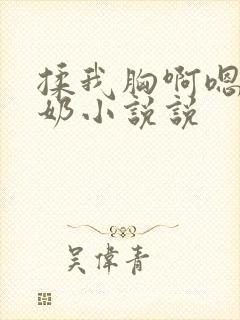 揉我胸啊嗯
奶小説説
吴偉青